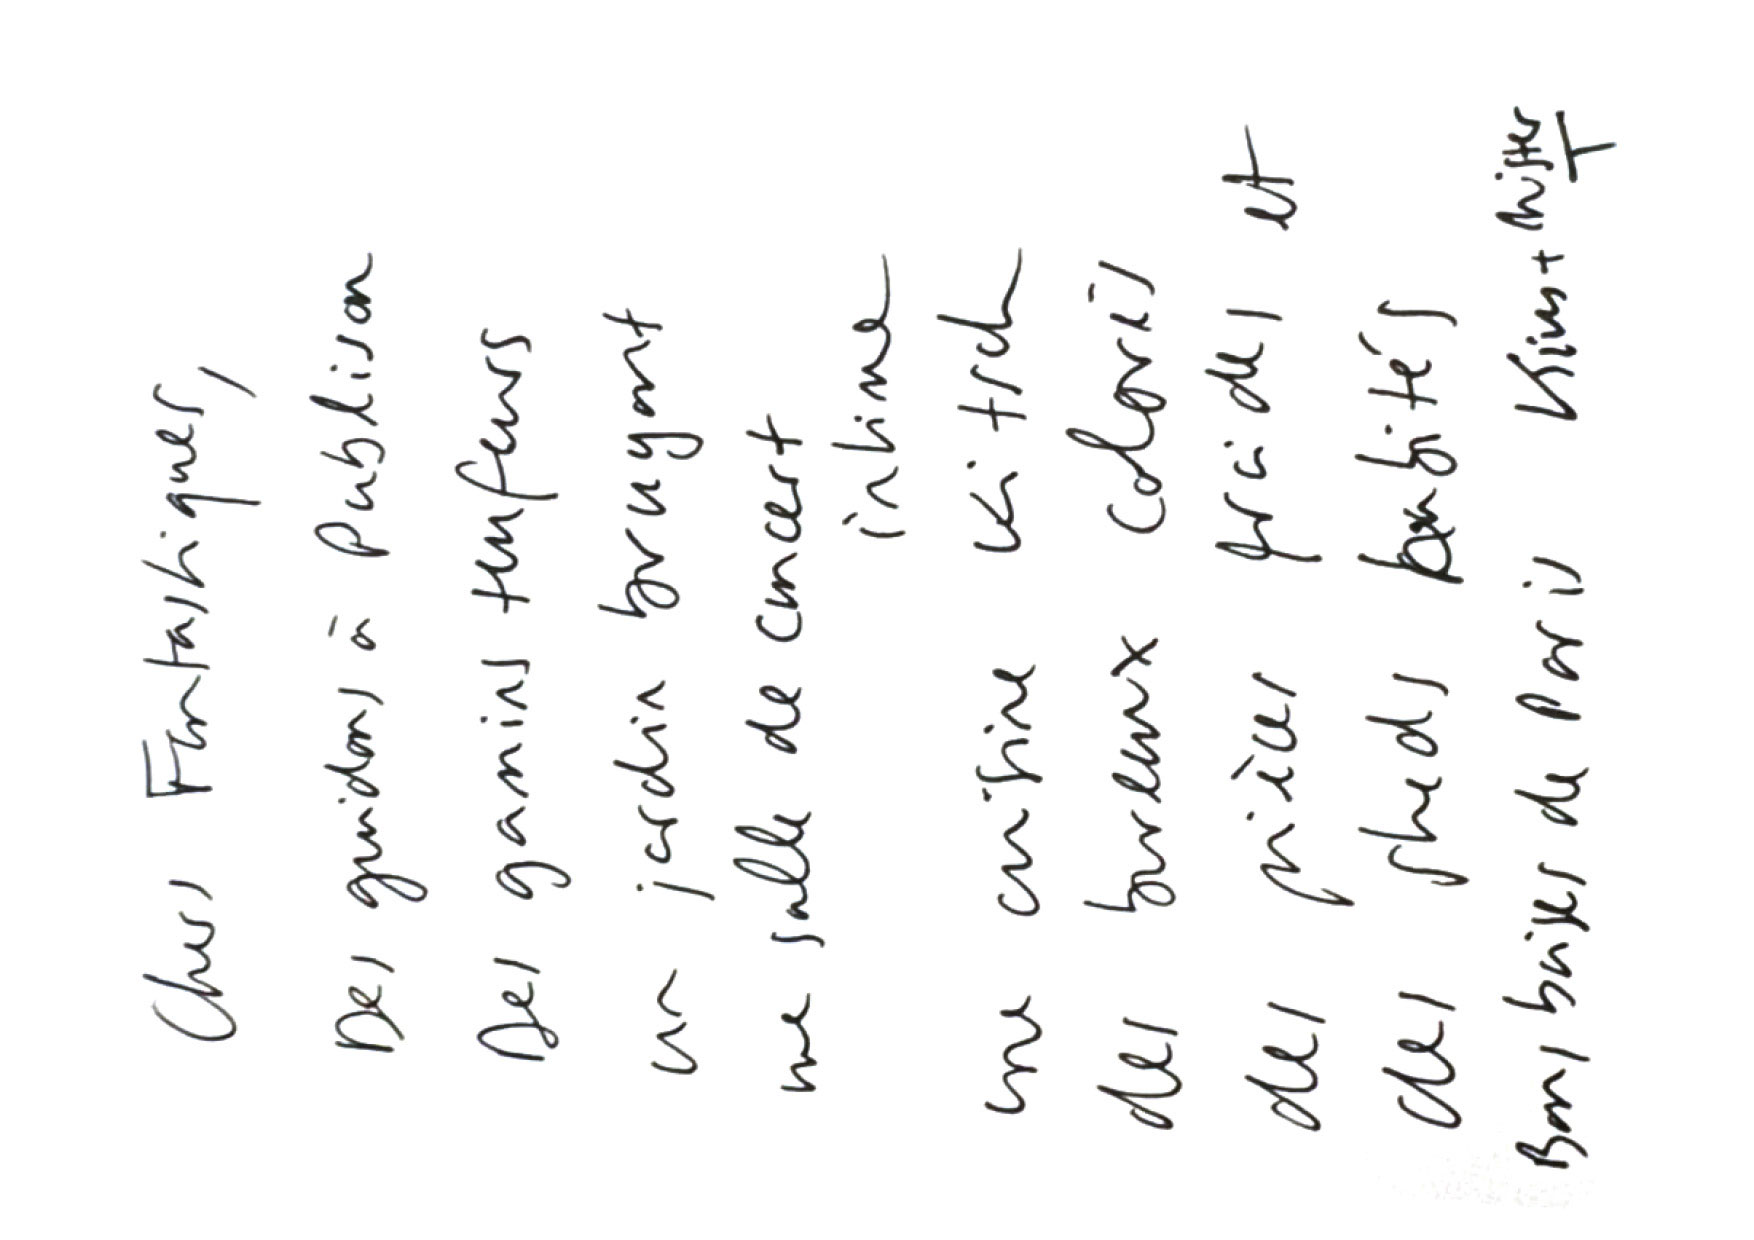 Chers Fantastiques,
Des guidons à Publison
Des gamins teufeurs
un jardin bruyant
une salle de concert
intime
une cuisine kitsch
des bureaux colorés
des pièces froides et
des sheds habités
Bons baisers de Paris Kim + Mister
T